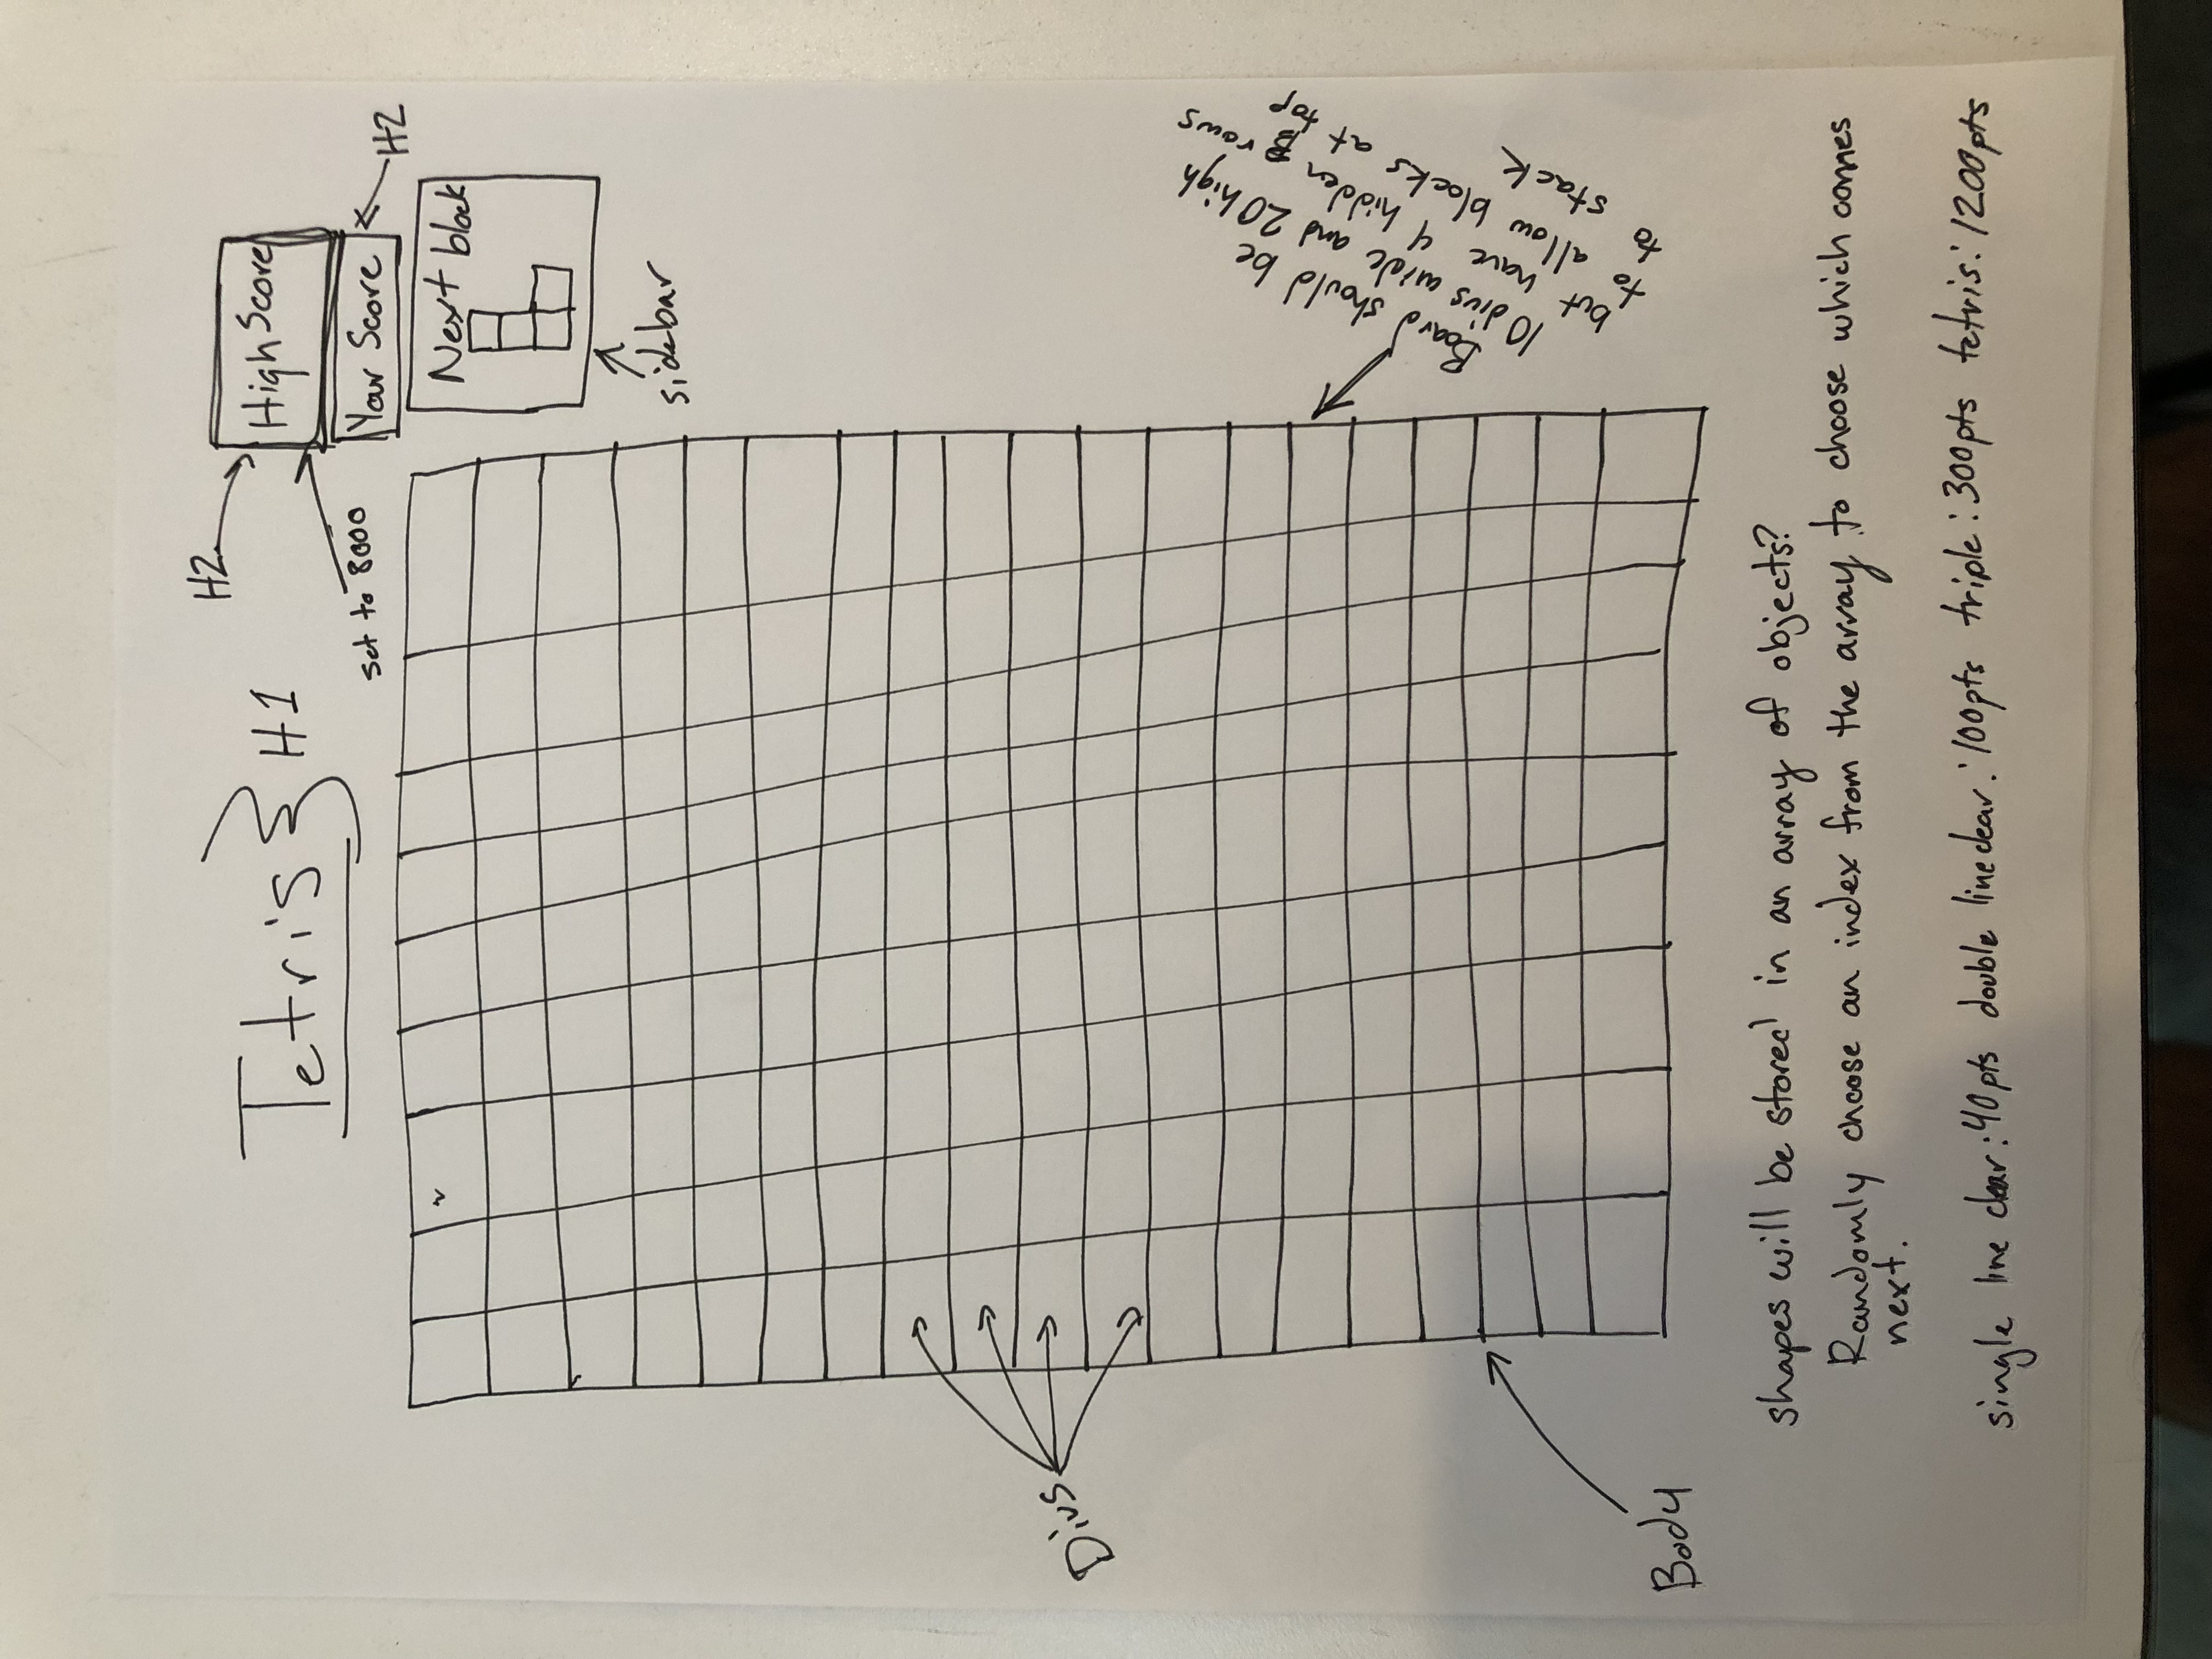 Tetris } H1
H2
High Score
set to 8000
Your Score
H2
Next block
sidebar
Divs
Board should be
10 divs wide and 20 high
but have 4 hidden rows
to allow blocks at top
to stack
Body
shapes will be stored in an array of objects?
Randomly choose an index from the array to choose which comes
next.
single line clear: 40pts double line clear: 100pts triple: 300pts tetris: 1200pts